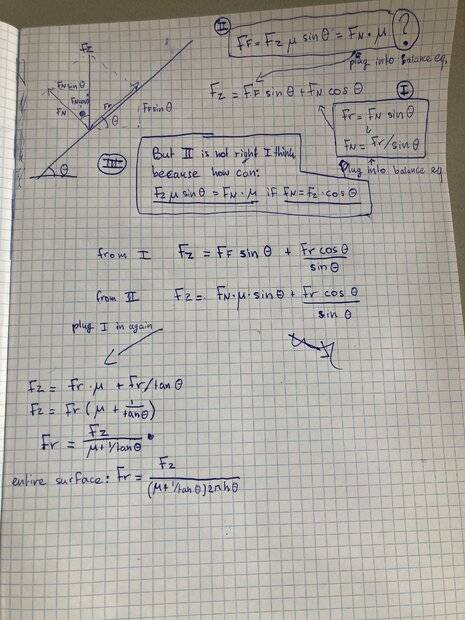 II
F_F = F_z μ sin θ = F_N · μ ?
plug into balance eq.
F_z
F_N sin θ
F_N
F_r
F_F sin θ
θ
θ
F_z = F_F sin θ + F_N cos θ
I
F_r = F_N sin θ
↓
F_N = F_r/sin θ
Plug into balance eq
III
But II is not right I think
because how can:
F_z μ sin θ = F_N · μ if F_N = F_z · cos θ
from I F_z = F_F sin θ + F_r cos θ / sin θ
from II F_z = F_N · μ · sin θ + F_r cos θ / sin θ
plug I in again
F_z = F_r · μ + F_r/tan θ
F_z = F_r (μ + 1/tan θ)
F_r = F_z / μ + 1/tan θ
entire surface: F_r = F_z / (μ + 1/tan θ) 2πh θ